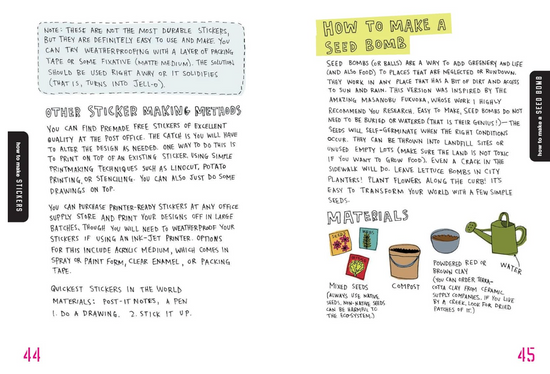 NOTE: THESE ARE NOT THE MOST DURABLE STICKERS,
BUT THEY ARE DEFINITELY EASY TO USE AND MAKE. YOU
CAN TRY WEATHERPROOFING WITH A LAYER OF PACKING
TAPE OR SOME FIXATIVE (MATTE MEDIUM). THE SOLUTION
SHOULD BE USED RIGHT AWAY OR IT SOLIDIFIES
(THAT IS, TURNS INTO JELL-O).
OTHER STICKER MAKING METHODS
YOU CAN FIND PREMADE FREE STICKERS OF EXCELLENT
QUALITY AT THE POST OFFICE. THE CATCH IS YOU WILL HAVE
TO ALTER THE DESIGN AS NEEDED. ONE WAY TO DO THIS IS
TO PRINT ON TOP OF AN EXISTING STICKER, USING SIMPLE
PRINTMAKING TECHNIQUES SUCH AS LINOCUT, POTATO
PRINTING, OR STENCILING. YOU CAN ALSO JUST DO SOME
DRAWINGS ON TOP.
YOU CAN PURCHASE PRINTER-READY STICKERS AT ANY OFFICE
SUPPLY STORE AND PRINT YOUR DESIGNS OFF IN LARGE
BATCHES, THOUGH YOU WILL NEED TO WEATHERPROOF YOUR
STICKERS IF USING AN INK-JET PRINTER. OPTIONS
FOR THIS INCLUDE ACRYLIC MEDIUM, WHICH COMES IN
SPRAY OR PAINT FORM, CLEAR ENAMEL, OR PACKING
TAPE.
QUICKEST STICKERS IN THE WORLD
MATERIALS: POST-IT NOTES, A PEN
1. DO A DRAWING. 2. STICK IT UP.
how to make STICKERS
44
HOW TO MAKE A
SEED BOMB
SEED BOMBS (OR BALLS) ARE A WAY TO ADD GREENERY AND LIFE
(AND ALSO FOOD) TO PLACES THAT ARE NEGLECTED OR RUNDOWN.
THEY WORK IN ANY PLACE THAT HAS A BIT OF DIRT AND ACCESS
TO SUN AND RAIN. THIS VERSION WAS INSPIRED BY THE
AMAZING MASANOBU FUKUOKA, WHOSE WORK I HIGHLY
RECOMMEND YOU RESEARCH. EASY TO MAKE, SEED BOMBS DO NOT
NEED TO BE BURIED OR WATERED (THAT IS THEIR GENIUS!)—THE
SEEDS WILL SELF-GERMINATE WHEN THE RIGHT CONDITIONS
OCCUR. THEY CAN BE THROWN INTO LANDFILL SITES OR
UNUSED EMPTY LOTS (MAKE SURE THE LAND IS NOT TOXIC
IF YOU WANT TO GROW FOOD). EVEN A CRACK IN THE
SIDEWALK WILL DO. LEAVE LETTUCE BOMBS IN CITY
PLANTERS! PLANT FLOWERS ALONG THE CURB! IT'S
EASY TO TRANSFORM YOUR WORLD WITH A FEW SIMPLE
SEEDS.
MATERIALS
MIXED SEEDS
(ALWAYS USE NATIVE
SEEDS. NON-NATIVE SEEDS
CAN BE HARMFUL TO
THE ECOSYSTEM.)
COMPOST
POWDERED RED OR
BROWN CLAY
(YOU CAN ORDER TERRA-
COTTA CLAY FROM CERAMIC
SUPPLY COMPANIES. IF YOU LIVE
BY A CREEK, LOOK FOR DRIED
PATCHES OF IT.)
WATER
how to make a SEED BOMB
45